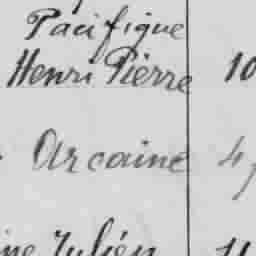 Pacifique
Henri Pierre 10
Arcaine 4
Julien